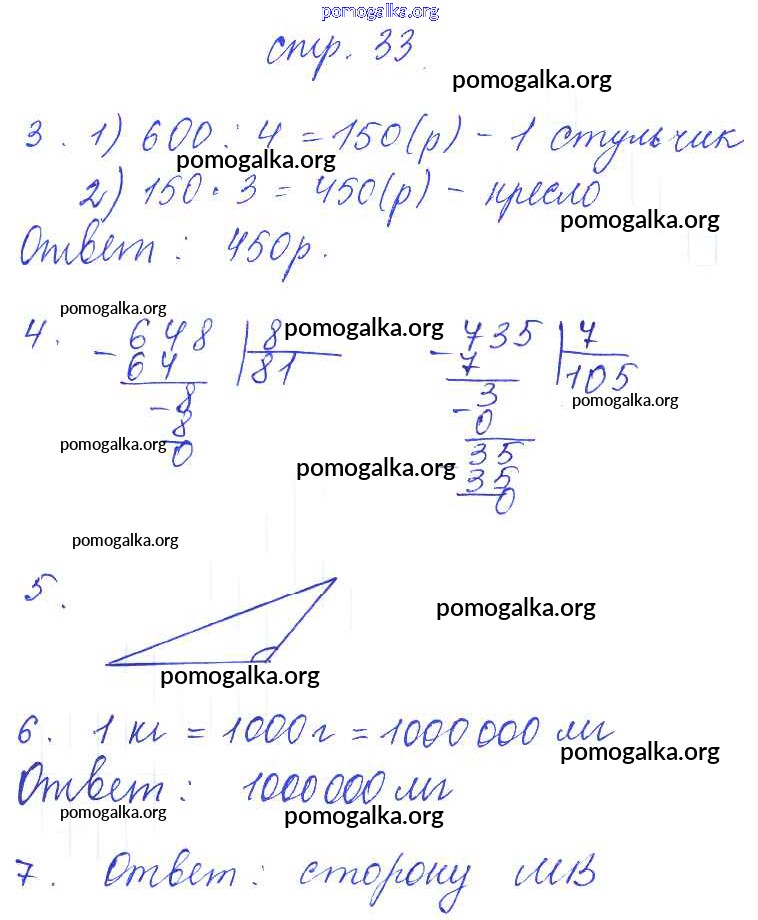 pomogalka.org
стр. 33
pomogalka.org
3. 1) 600 : 4 = 150(р) - 1 стульчик
pomogalka.org
2) 150 · 3 = 450(р) - кресло
pomogalka.org
Ответ: 450р.
pomogalka.org
4. - 648 | 8 - 735 | 7
pomogalka.org
64 81 7 105
pomogalka.org
- 8 - 3
8 0
pomogalka.org
0 - 35
pomogalka.org
35
0
pomogalka.org
5.
pomogalka.org
pomogalka.org
6. 1 кг = 1000 г = 1000 000 мг
pomogalka.org
Ответ: 1000 000 мг
pomogalka.org pomogalka.org
7. Ответ: сторону МВ